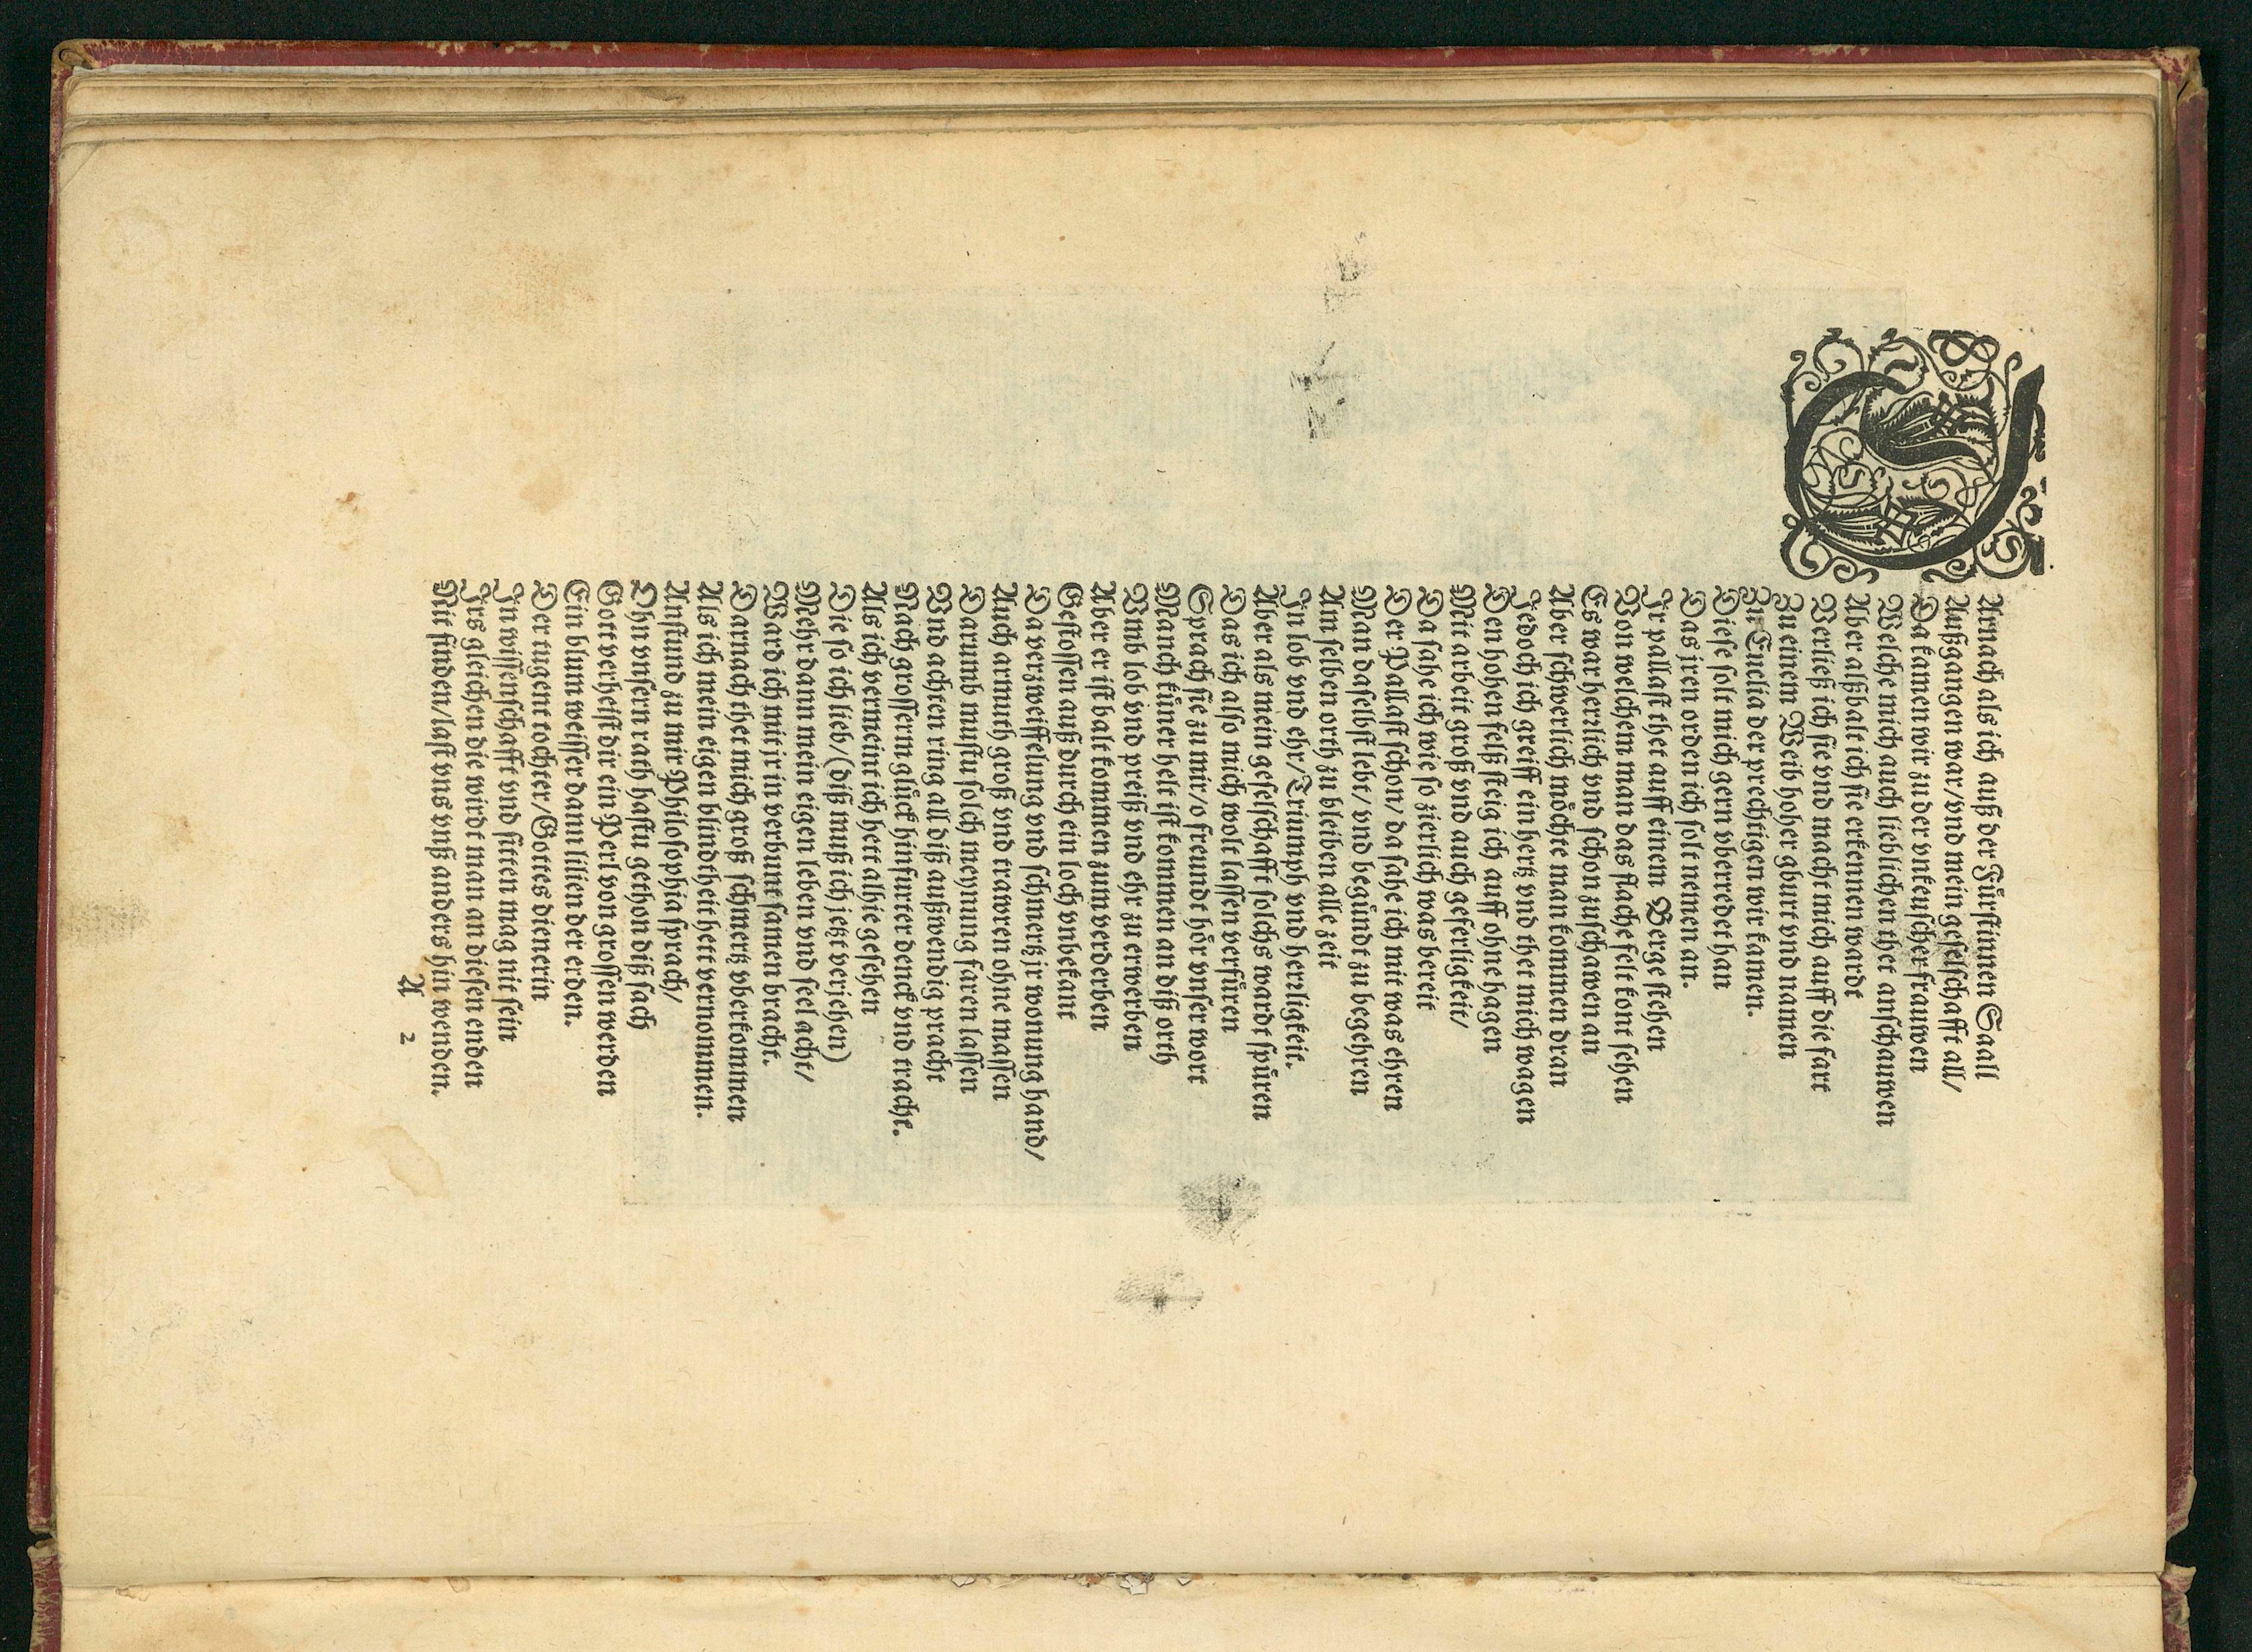 DArnach als ich auß der Fürstinnen Saall
Außgangen war/vnd mein geselschafft all/
Da kamen wir zu der vnkeuscher frauwen
Welche mich auch lieblichen thet anschauwen
Aber alßbalt ich sie erkennen wardt
Verließ ich sie vnd macht mich auff die fart
Zu einem Weib hoher gburt vnd namen
Zu Euclia der prechtigen wir kamen.
Diese solt mich gern vberredet han
Das jren orden ich solt nemen an.
Jr pallast thet auff einem Berge stehen
Von welchem man das flache felt kont sehen
Es war herrlich vnd schon zuschawen an
Aber schwerlich möchte man kommen dran
Jedoch ich greiff ein hertz vnd thet mich wagen
Den hohen felß steig ich auff ohne hagen
Mit arbeit groß vnd auch geferligkeit/
Da sahe ich wie so zierlich was bereit
Der Pallast schon/ da sahe ich mit was ehren
Man daselbst lebt/ vnd begündt zu begehren
Am selben orth zu bleiben alle zeit
Jn lob vnd ehr/Triumph vnd herrligkeit.
Aber als mein geselschafft solchs wardt spüren
Das ich also mich wolt lassen verfüren
Sprach sie zu mir/o freundt hör vnser wort
Manch küner helt ist kommen an diß orth
Vmb lob vnd preiß vnd ehr zu erwerben
Aber er ist balt kommen zum verderben
Gestossen auß durch ein loch vnbekant
Da verzweiffelung vnd schmertz jr wonung hand/
Auch armuth groß vnd trawren ohne massen
Darumb mustu solch meynung faren lassen
Vnd achten ring all diß außwendig pracht
Nach grosserm glück hinfurter denck vnd tracht.
Als ich vermeint ich hett alhie gesehen
Die so ich lieb/(diß muß ich jetzt verjehen)
Mehr dann mein eigen leben vnd seel acht/
Ward ich mit jr in verbunt samen bracht.
Darnach thet mich groß schmertz vberkommen
Als ich mein eigen blindtheit hett vernommen.
Anstund zu mir Philosophia sprach/
Ohn vnsern rath hastu gethon diß sach
Gott verheist dir ein Perl von grossen werden
Ein blum weisser dann lilien der erden.
Der tugent tochter/Gottes dienerin
Jn wissenschafft vnd sitten mag nit sein
Jrs gleichen die wirdt man an diesen enden
Nit finden/last vns vnß anders hin wenden.
A 2